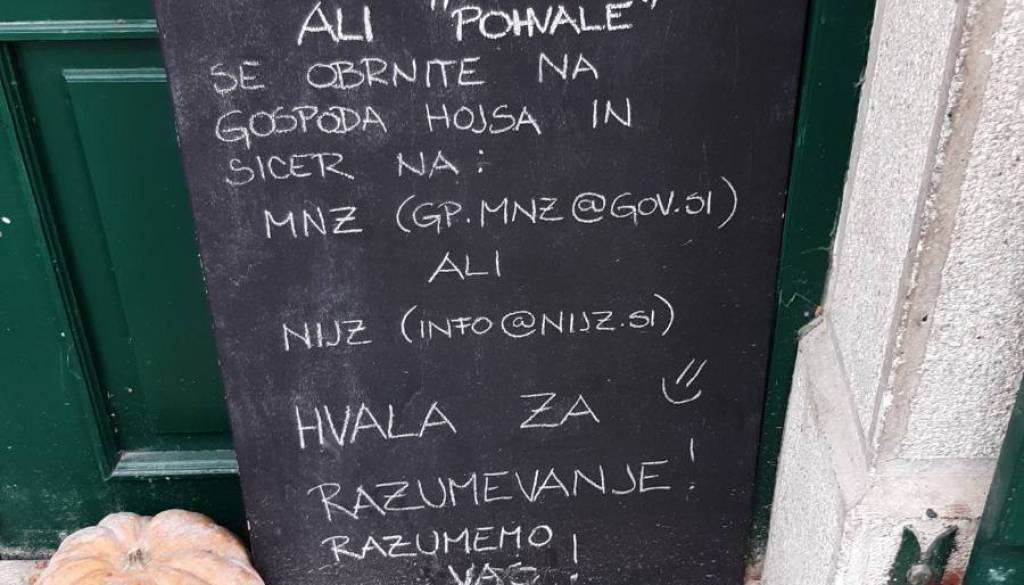 ALI "POHVALE"
SE OBRNITE NA
GOSPODA HOJSA IN
SICER NA:
MNZ (GP.MNZ@GOV.SI)
ALI
NIJZ (INFO@NIJZ.SI)
HVALA ZA
RAZUMEVANJE!
RAZUMEMO
VAS!